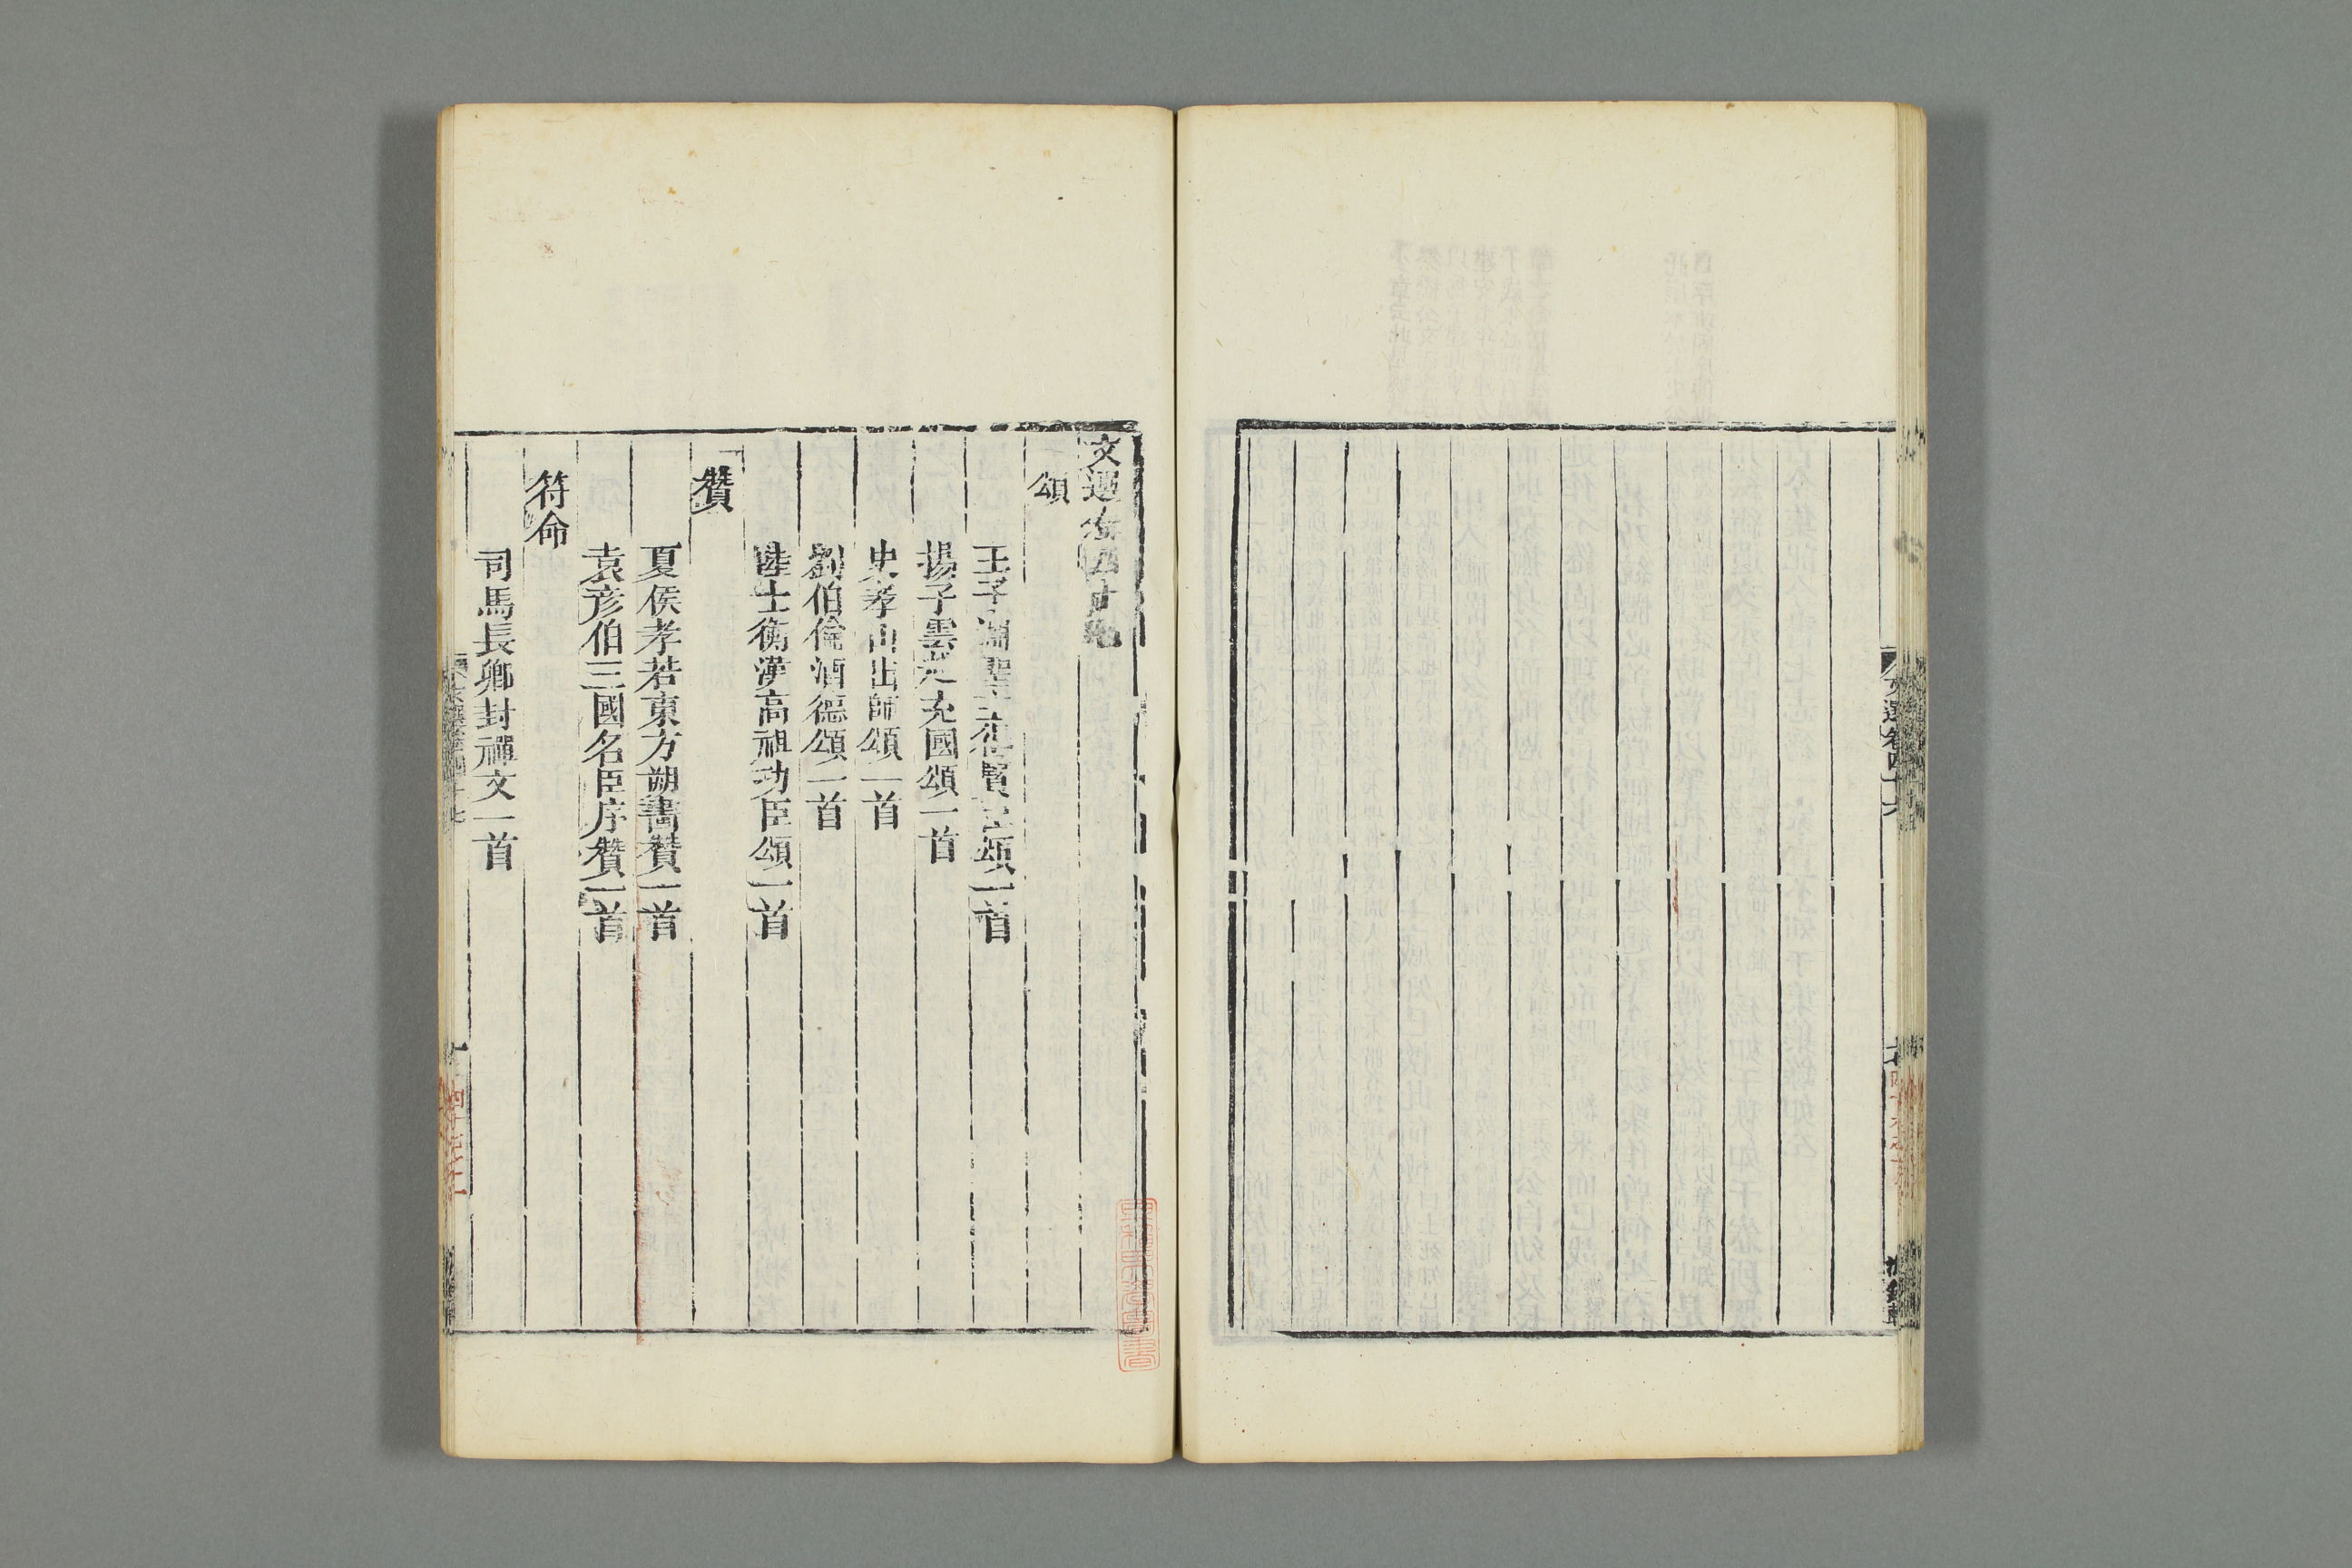 文選卷四十六
文選卷四十七
頌
王子淵聖主得賢臣頌一首
揚子雲趙充國頌一首
史孝山出師頌一首
劉伯倫酒德頌一首
陸士衡漢高祖功臣頌一首
贊
夏侯孝若東方朔畫贊一首
袁彥伯三國名臣序贊一首
符命
司馬長卿封禪文一首